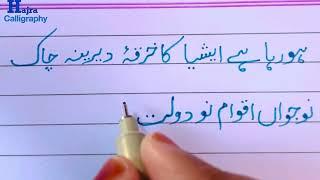 Hajra
Calligraphy
ہو رہا ہے ایشیا کا خرقۂ دیرینہ چاک
نوجواں اقوام نو دولت